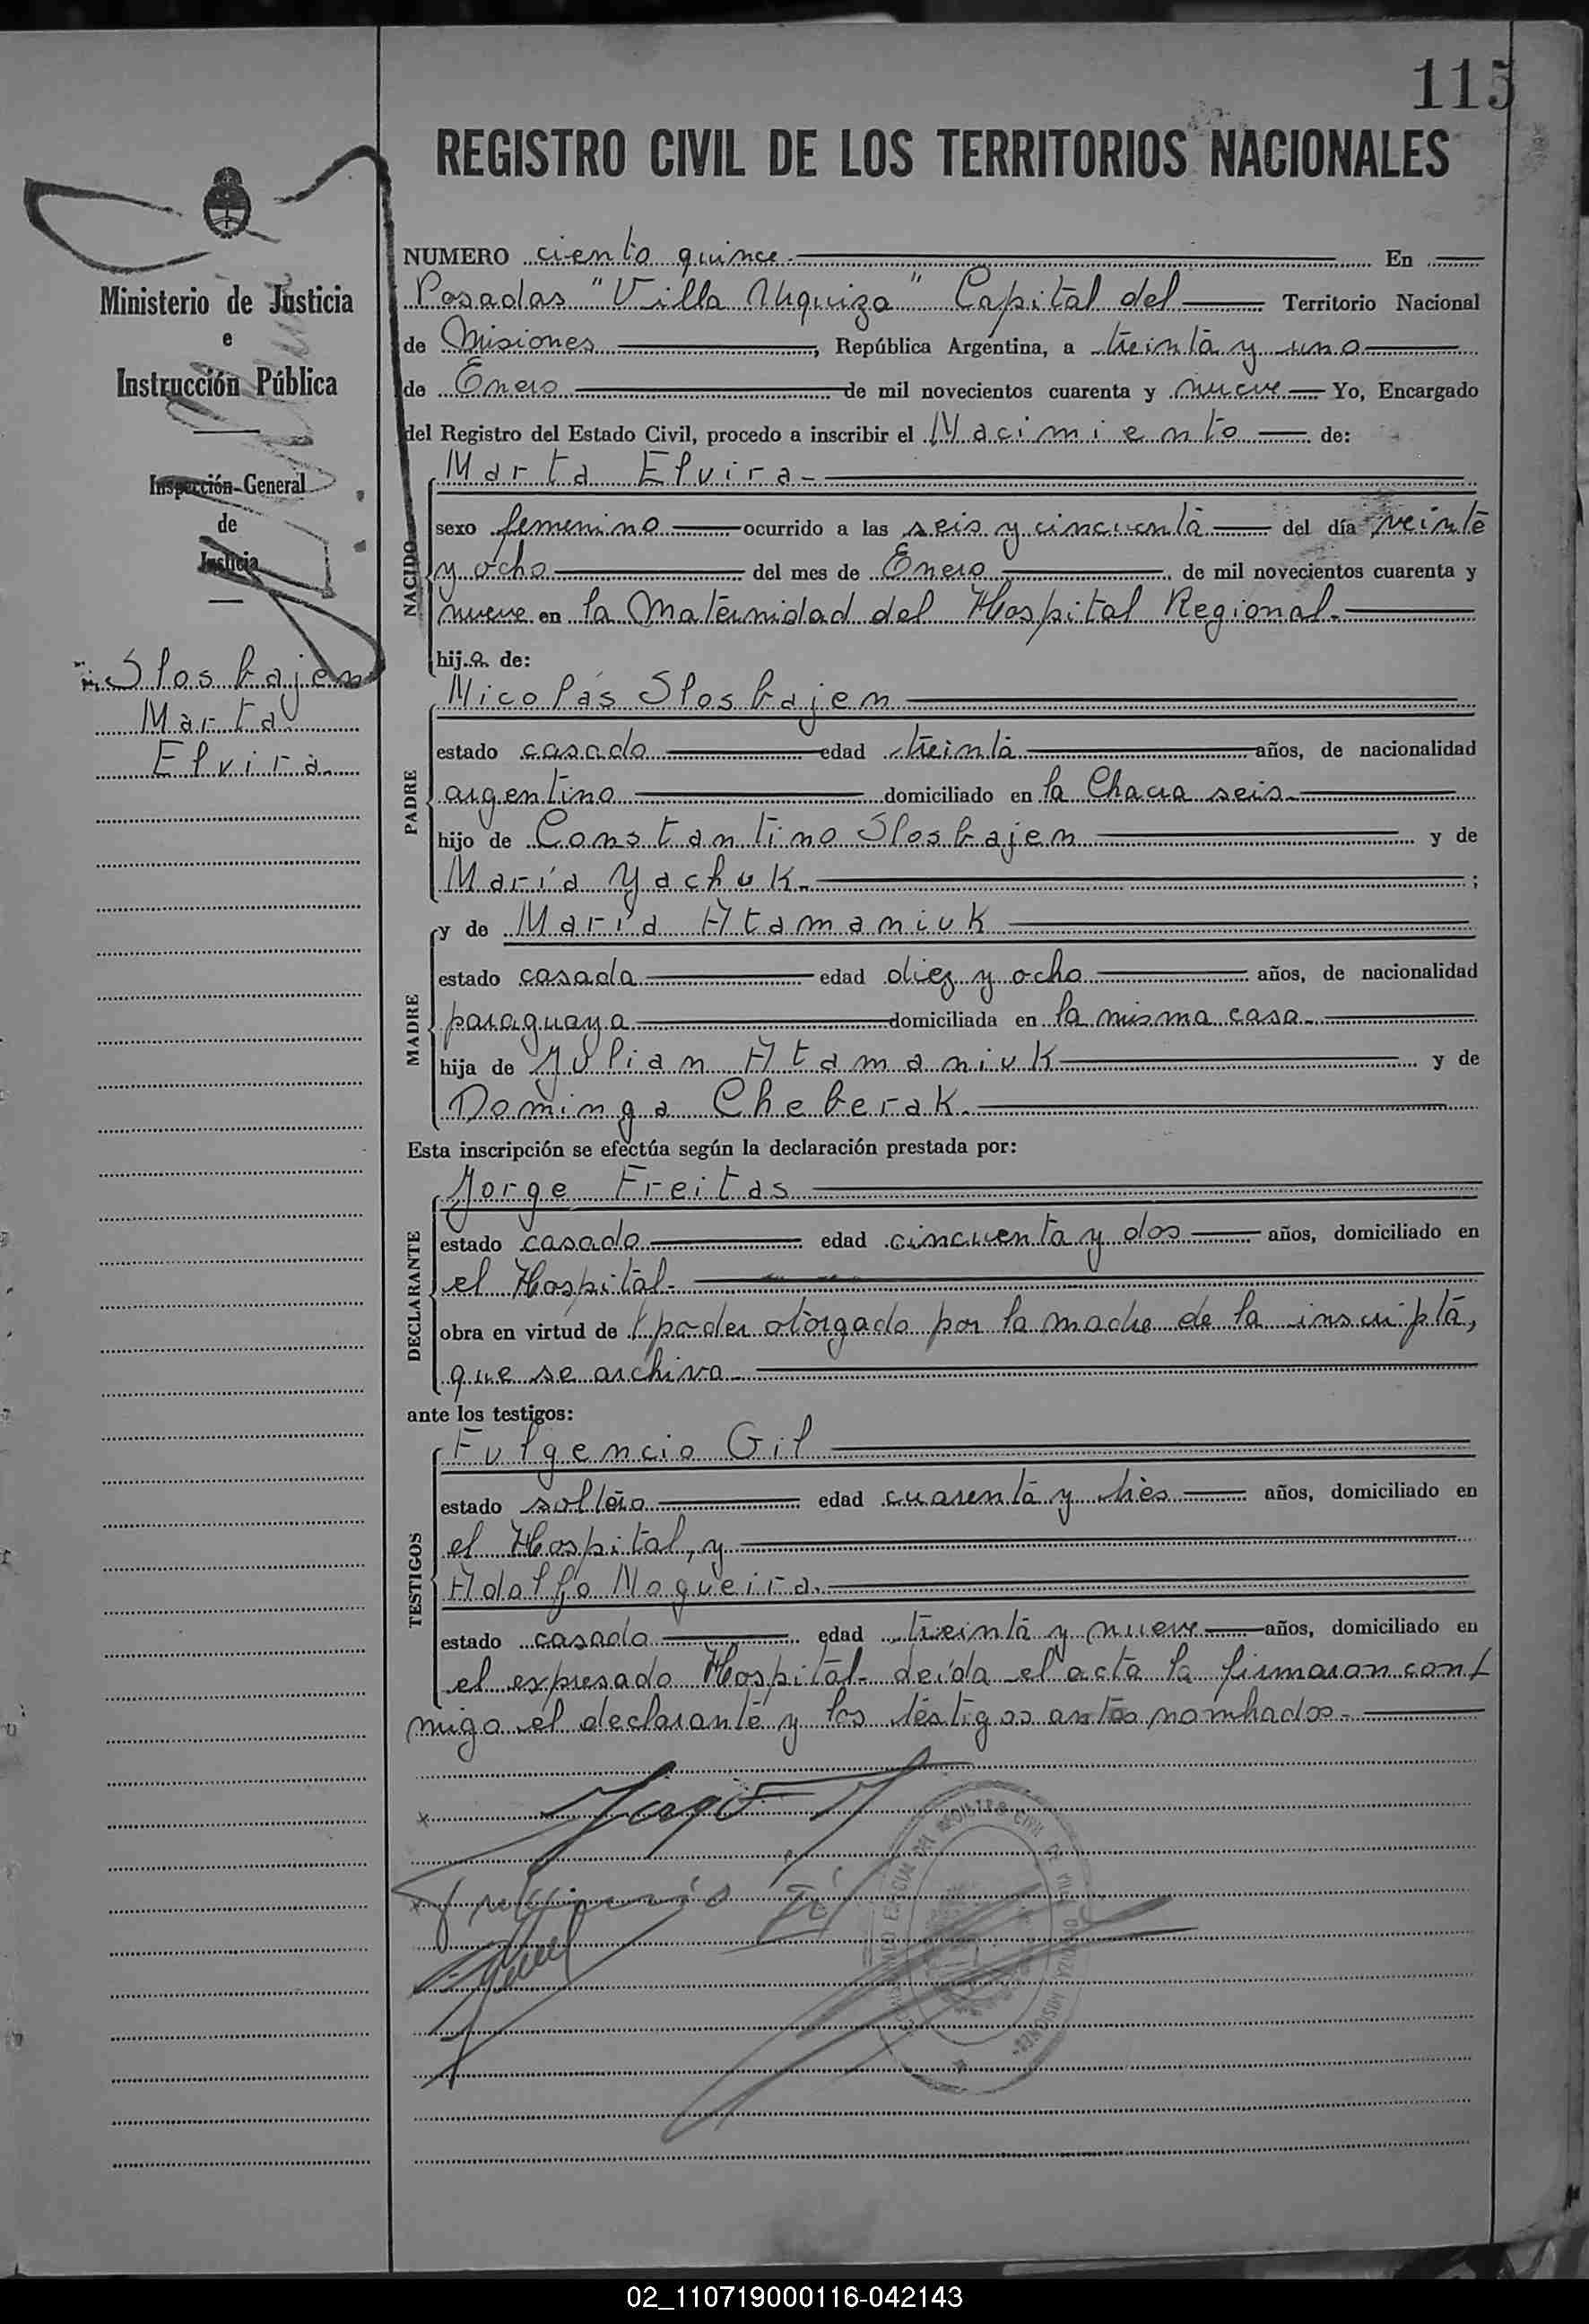 115
REGISTRO CIVIL DE LOS TERRITORIOS NACIONALES
Ministerio de Justicia
e
Instrucción Pública
Inspección General
de
Justicia
Slosbajen
Marta
Elvira
NUMERO ciento quince En
Posadas "Villa Urquiza" Capital del Territorio Nacional
de Misiones, República Argentina, a treinta y uno
de Enero de mil novecientos cuarenta y nueve Yo, Encargado
del Registro del Estado Civil, procedo a inscribir el Nacimiento de:
NACIDO
Marta Elvira
sexo femenino ocurrido a las seis y cincuenta del día veinte
y ocho del mes de Enero de mil novecientos cuarenta y
nueve en la Maternidad del Hospital Regional.
hija de:
PADRE
Nicolás Slosbajen
estado casado edad treinta años, de nacionalidad
argentino domiciliado en la Chacra seis
hijo de Constantino Slosbajen y de
María Yachuk. ;
MADRE
y de María Atamaniuk
estado casada edad diez y ocho años, de nacionalidad
paraguaya domiciliada en la misma casa
hija de Julian Atamaniuk y de
Dominga Cheberak.
Esta inscripción se efectúa según la declaración prestada por:
DECLARANTE
Jorge Freitas
estado casado edad cincuenta y dos años, domiciliado en
el Hospital
obra en virtud de poder otorgado por la madre de la inscripta,
que se archiva
ante los testigos:
TESTIGOS
Fulgencio Gil
estado soltero edad cuarenta y tres años, domiciliado en
el Hospital, y
Adolfo Nogueira.
estado casado edad treinta y nueve años, domiciliado en
el expresado Hospital- leída el acta la firmaron con
migo el declarante y los testigos antes nombrados
02_110719000116-042143